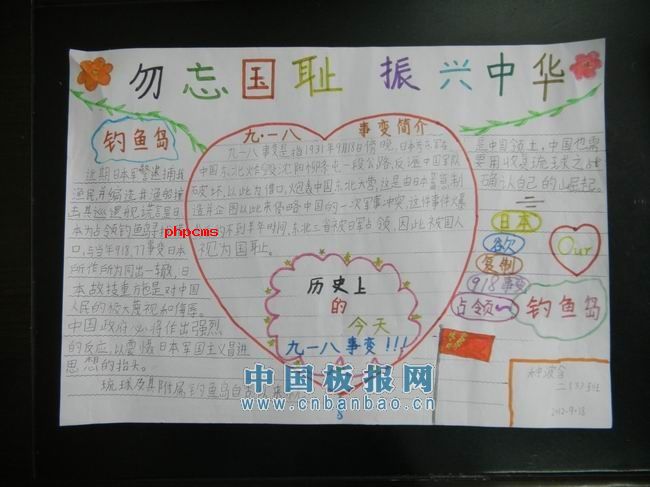 勿忘国耻 振兴中华
钓鱼岛
近期日本军警逮捕并
渔民并编造并渔船撞
击其巡逻视谎言是日
本为占领钓鱼岛
口,与当年918,77事变日本
所作所为同出一辙,日
本故技重施是对中国
人民的极大蔑视和侮辱。
中国政府必将作出强烈
的反应,以震慑日本军国主义冒进
思想的抬头。
琉球及其附属钓鱼岛自古
九·一八 事变简介
九一八事变是指1931年9月18日傍晚,日本
中国东北炸毁沈阳柳条屯一段公路,反诬中国军队
破坏,以此为借口,炮轰中国东北大营,这是由日本蓄意制
造并企图以此来侵略中国的一次军事冲突,这件事件
的不到半年时间,东北三省被日军占领,因此被国人
视为国耻。
phpcms
历史上
的
今天
九一八事变!!!
是中国领土,中国也需
要用收复琉球之战
确认自己的山崛起。
日本
欲
复制
918事变
占领~
Our
钓鱼岛
2012.9.18
中国板报网
www.cnbanbao.cn